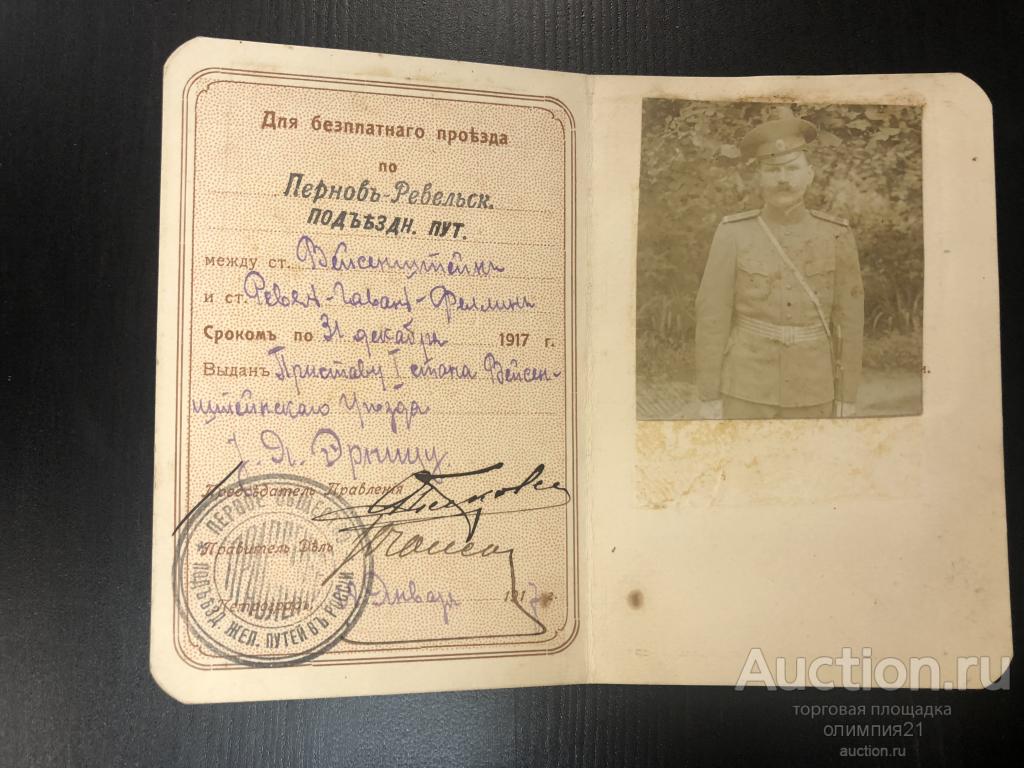 Для безплатнаго проѣзда
по
Перновъ-Ревельск.
ПОДЪѢЗДН. ПУТ.
между ст. Вейсенштейнъ
и ст. Ревел-Гавань-Феллинъ
Срокомъ по 31 декабря 1917 г.
Выданъ Приставу 1 стана Вейсен-
штейнскаго Уѣзда
Предсѣдатель Правленія
Правитель Дѣлъ
Петроградъ, Января 1917 г.
ПЕРВОЕ ОБЩЕ
ПОДЪѢЗД. ЖЕЛ. ПУТЕЙ ВЪ РОССІИ
Auction.ru
торговая площадка
олимпия21
auction.ru